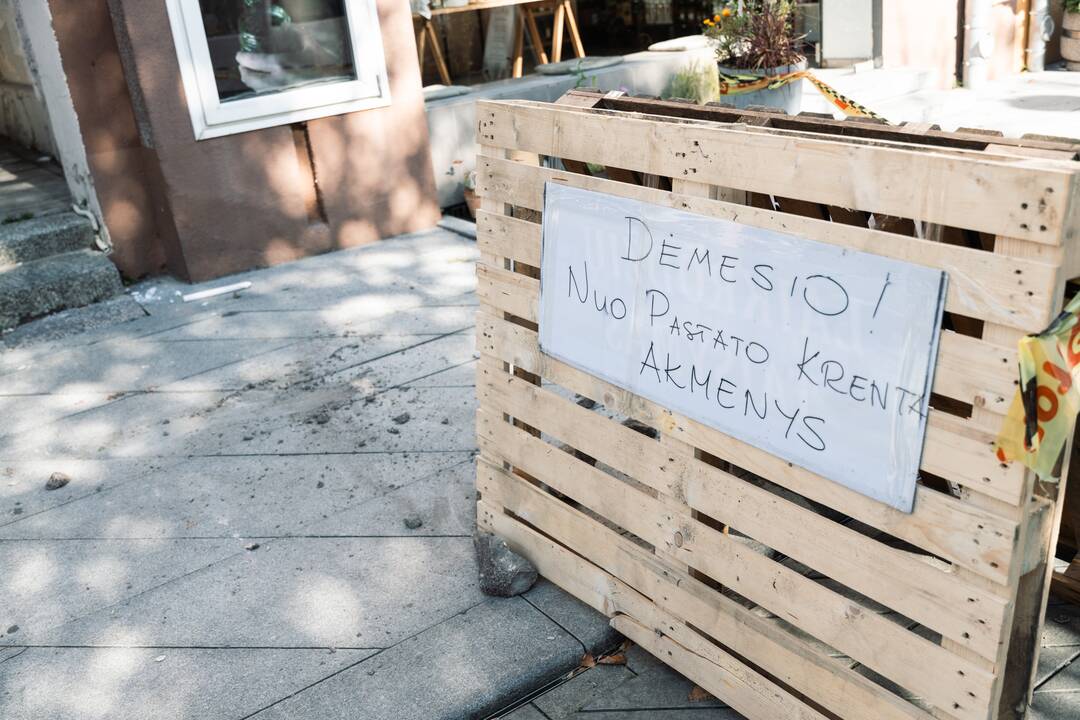 DĖMESIO!
NUO PASTATO KRENTA
AKMENYS